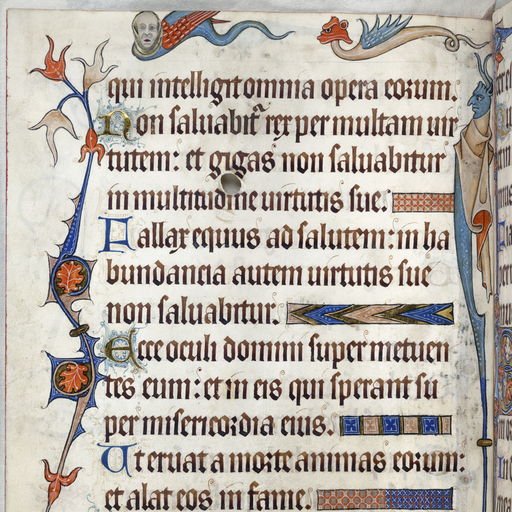 qui intelligit omnia opera eorum.
Non saluabit~ rex per multam uir
tutem: et gigas non saluabitur
in multitudine uirtutis sue.
Fallax equus ad salutem: in ha
bundancia autem uirtutis sue
non saluabitur.
Ecce oculi domini super metuen
tes eum: et in eis qui sperant su
per misericordia eius.
Ut eruat a morte animas eorum:
et alat eos in fame.